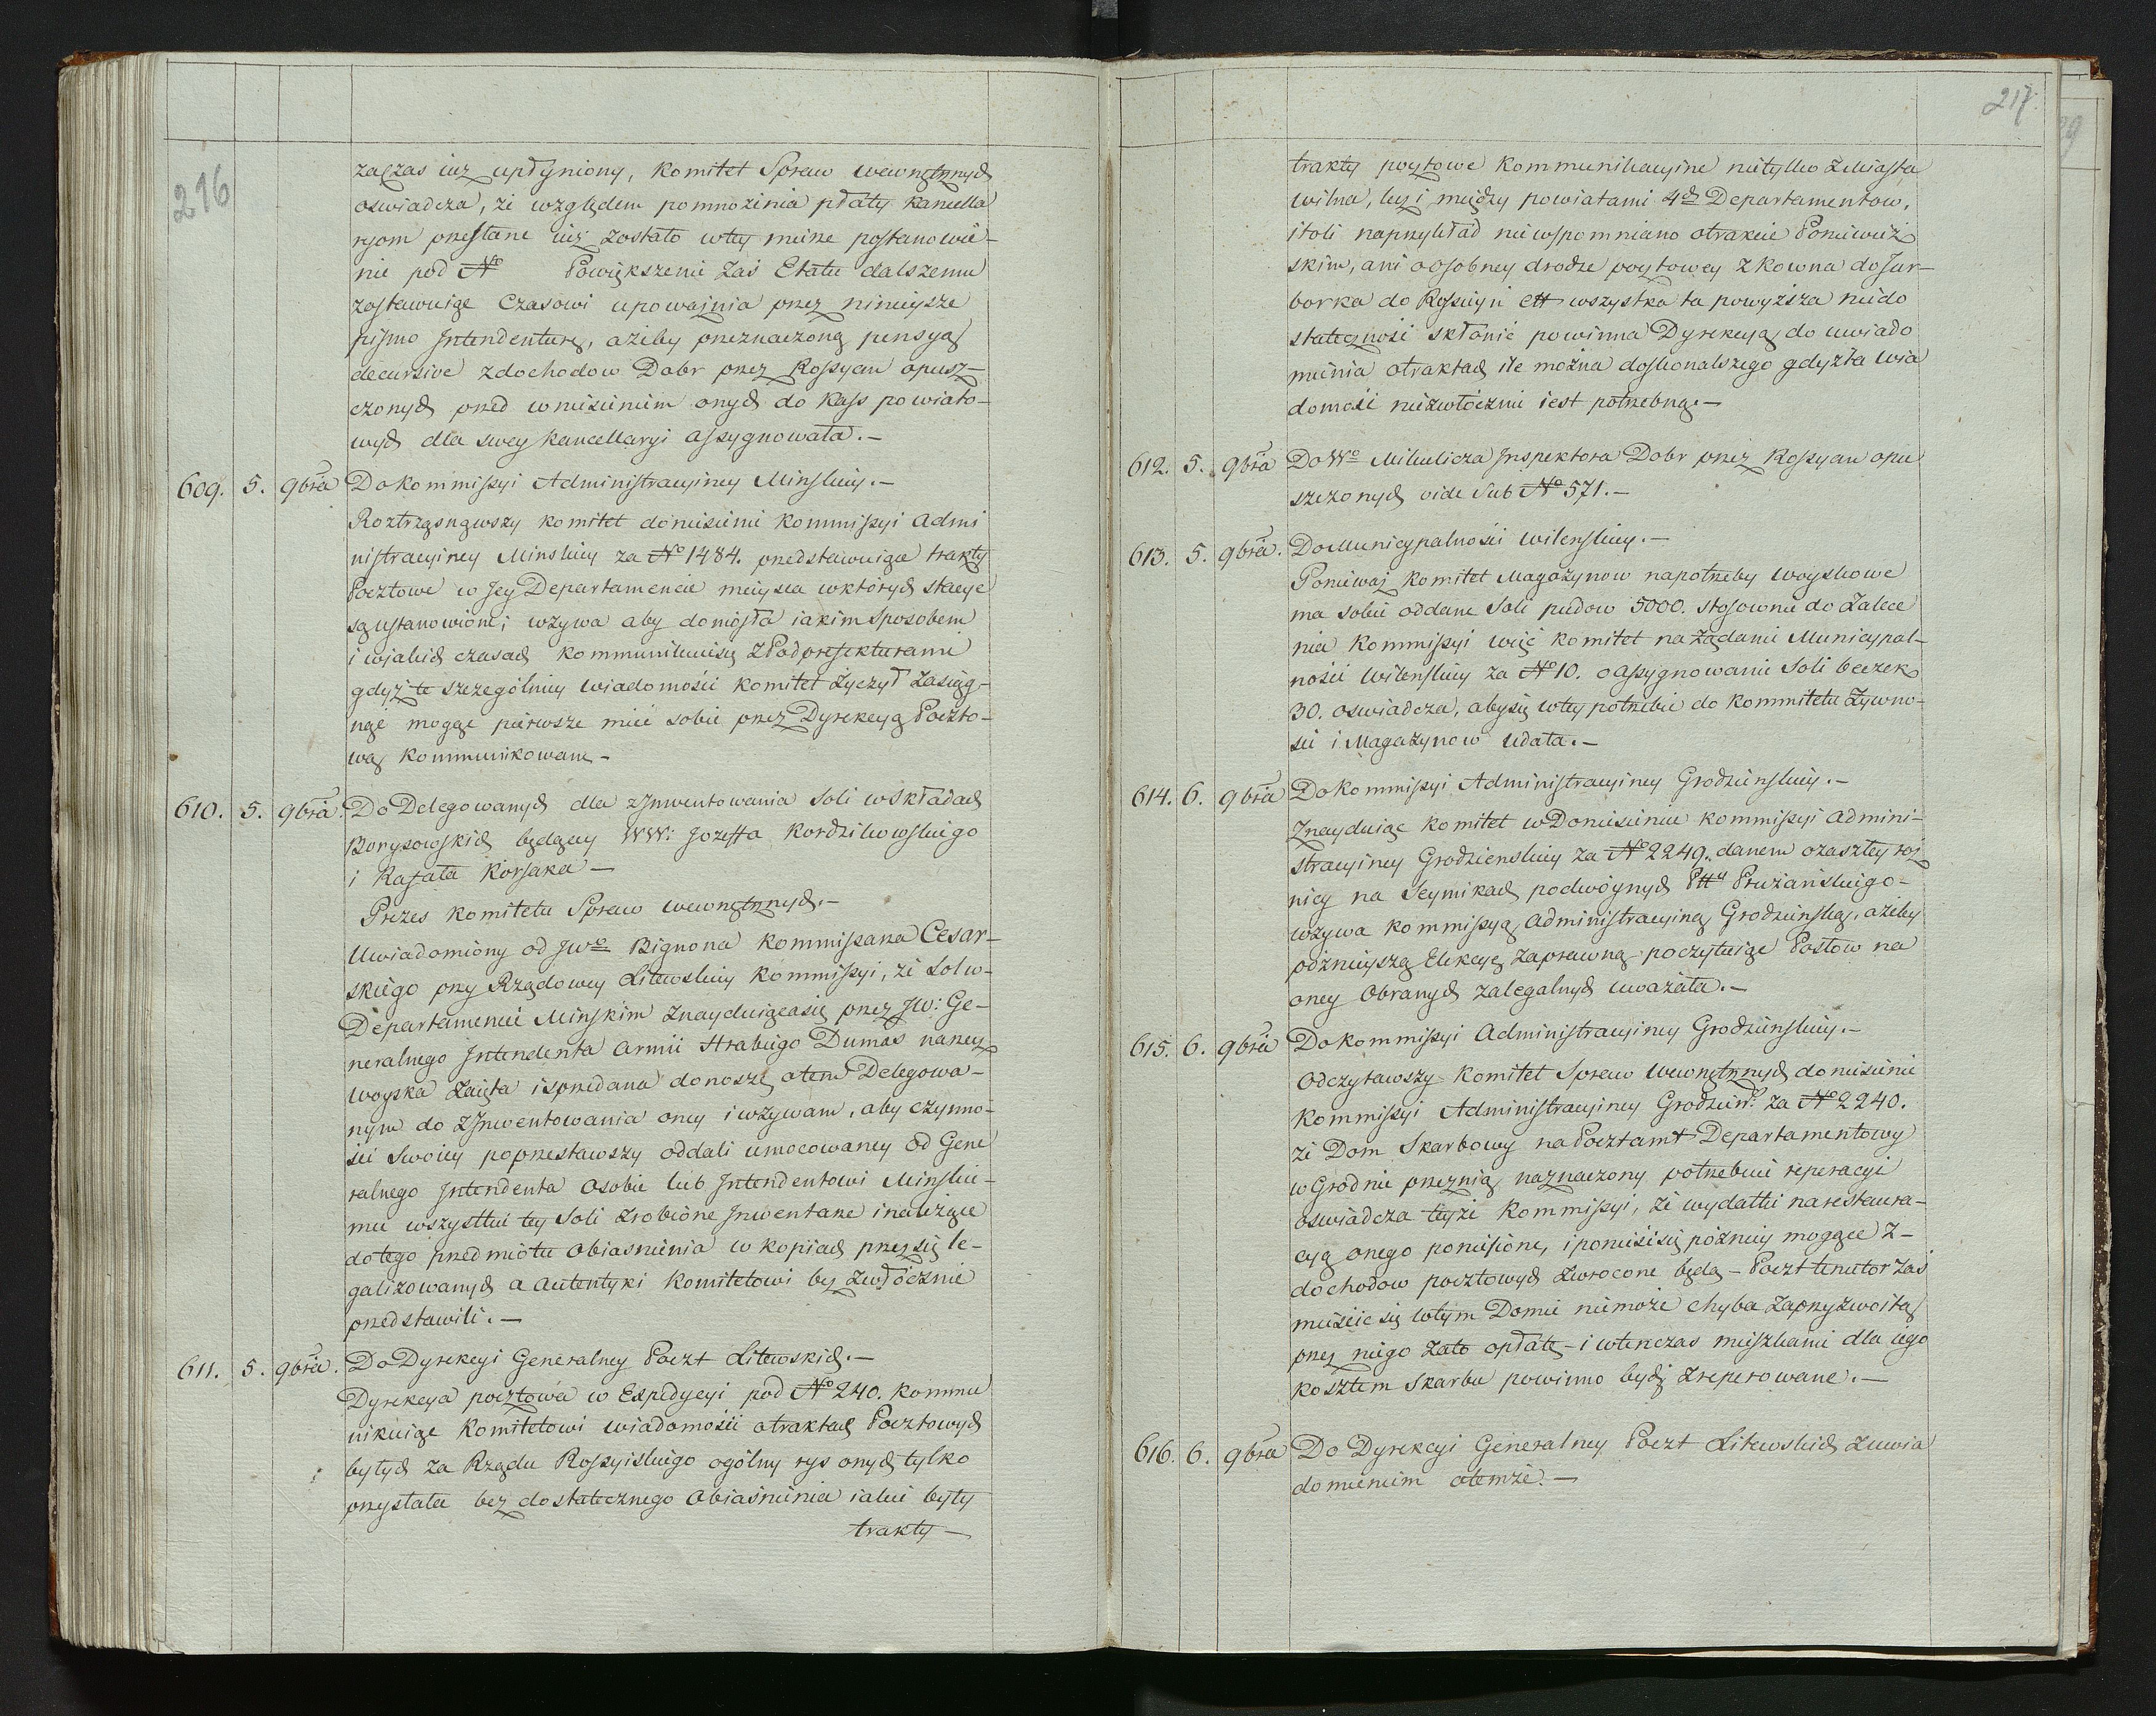 216
za czas iuż upłyniony, Komitet Spraw wewnętrznych
oswiadcza, że względem pomnożenia płaty kancella
ryom przesłane iuż zostało w tey mierze postanowie-
nie pod No Powiększenie zaś Etatu dalszemu
zostawuiąc Czasowi upoważnia przez ninieysze
pismo Intendenturę, ażeby przeznaczoną pensyą
decursive z dochodow Dobr przez Rossyan opusz-
czonych przed wniesieniem onych do Kass powiato-
wych dla swey Kancellaryi assygnowała.-
609. 5. 9bra Do Kommissyi Administracyiney Minskiey.-
Roztrząsnąwszy Komitet doniesienie Kommissyi Admi
nistracyiney Minskiey za No 1484. przedstawuiące trakty
Pocztowe w Jey Departamencie mieysca w których stacye
są ustanowione; wzywa aby doniosła iakim Sposobem
i w iakich czasach kommunikuie się z Podprefekturami
gdyż te szczególniey wiadomości Komitet życzył zasięg-
nąć mogąc pierwsze mieć sobie przez Dyrekcyą Poczto-
wą kommunikowane-
610. 5. 9bra. Do Delegowanych dla zJnwentowania Soli w Składach
Borysowskich będącey WW: Jozeffa Kordzikowskiego
i Rafała Korsaka-
Prezes Komitetu Spraw wewnętrznych.-
Uwiadomiony od JWo Bignona Kommissarza Cesar-
skiego przy Rządowey Litewskiey Kommissyi, że Sol w-
Departamencie Minskim znayduiąca się przez JW: Ge-
neralnego Intendenta Armii Hrabiego Dumas na rzecz
woyska zaięta i sprzedana donoszę o tem Delegowa-
nym do zJnwentowania oney i wzywam, aby czynno-
ści swoiey poprzestawszy oddali umocowaney od Gene
ralnego Intendenta Osobie lub Intendentowi Minskie-
mu wszystkie tey Soli zrobione Jnwentarze i należące
do tego przedmiotu obiasnienia w kopiach przez się le-
galizowanych a autentyki Komitetowi bez zwłócznie
przedstawili.-
611. 5. 9bra. Do Dyrekcyi Generalney Poczt Litewskich.-
Dyrekcya pocztowa w Expedycyi pod No 240. kommu
nikuiąc Komitetowi wiadomości o traktach Pocztowych
byłych za Rządu Rossyiskiego ogólny rys onych tylko
przysłała bez dostatecznego obiaśnienia iakie były
trakty-
217.
trakty pocztowe kommunikacyine nietylko z Miasta
Wilna, lecz i między powiatami 4ch Departamentow,
ieżeli naprzykład nie wspomniano o trakcie Poniewież
skim, ani o osobney drodze pocztowey z Kowna do Jur-
borka do Rossieyń ett wszystka ta powyższa niedo
stateczność skłonić powinna Dyrekcyą do uwiado
mienia o traktach ile można doskonalszego gdyż ta wia
domość niezwłócznie iest potrzebną.-
612. 5. 9bra Do Wo Mikulicza Inspektora Dobr przez Rossyan opu
szczonych vide Sub No 571.-
613. 5. 9bra. Do Municypalności Wilenskiey.-
Ponieważ Komitet Magazynow na potrzeby woyskowe
ma sobie oddane Soli pudow 5000. stosownie do zalece
nia Kommissyi więc Komitet na żądanie Municypal-
ności Wilenskiey za No 10. o assygnowanie Soli beczek
30. oswiadcza, aby się w tey potrzebie do Kommitetu Żywno-
ści i Magazynow udała.-
614. 6. 9bra Do Kommissyi Administracyiney Grodzienskiey.-
Znayduiąc Komitet w Doniesieniu Kommissyi Admini-
stracyiney Grodzienskiey za No 2249. danem o zaszłey roż
nicy na Seymikach podwóynych Pttu Prużańskiego-
wzywa Kommissyą Administracyiną Grodzieńską, ażeby
poźnieyszą Elekcyę za prawną poczytuiąc Posłow na
oney Obranych za legalnych uważała.-
615. 6. 9bra Do Kommissyi Administracyiney Grodzienskiey.-
Odczytawszy Komitet Spraw Wewnętrznych doniesienie
Kommissyi Administracyiney Grodzień: za No 2240.
że Dom Skarbowy na Pocztamt Departamentowy
w Grodnie przez nią naznaczony potrzebuie reperacyi
oswiadcza teyże Kommissyi, że wydatki na restaura-
cyą onego poniesione, i ponieść się poźniey mogące z-
dochodow pocztowych zwrocone będą - Poczt tenutor zaś
mieścić się w tym Domie nie może chyba za przyzwoitą
przez niego zato opłatę - i wtenczas mieszkanie dla iego
kosztem Skarbu powinno bydź zreperowane.-
616. 6. 9bra Do Dyrekcyi Generalney Poczt Litewskich z uwia
domieniem o temże.-